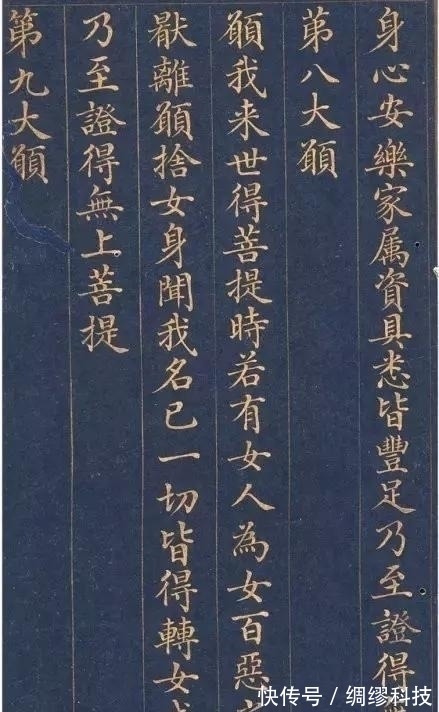 身心安樂家属資具悉皆豐足乃至證得
苐八大願
願我来世得菩提時若有女人為女百惡
猒離願捨女身聞我名已一切皆得轉女
乃至證得無上菩提
第九大願
快传号/绸缪科技